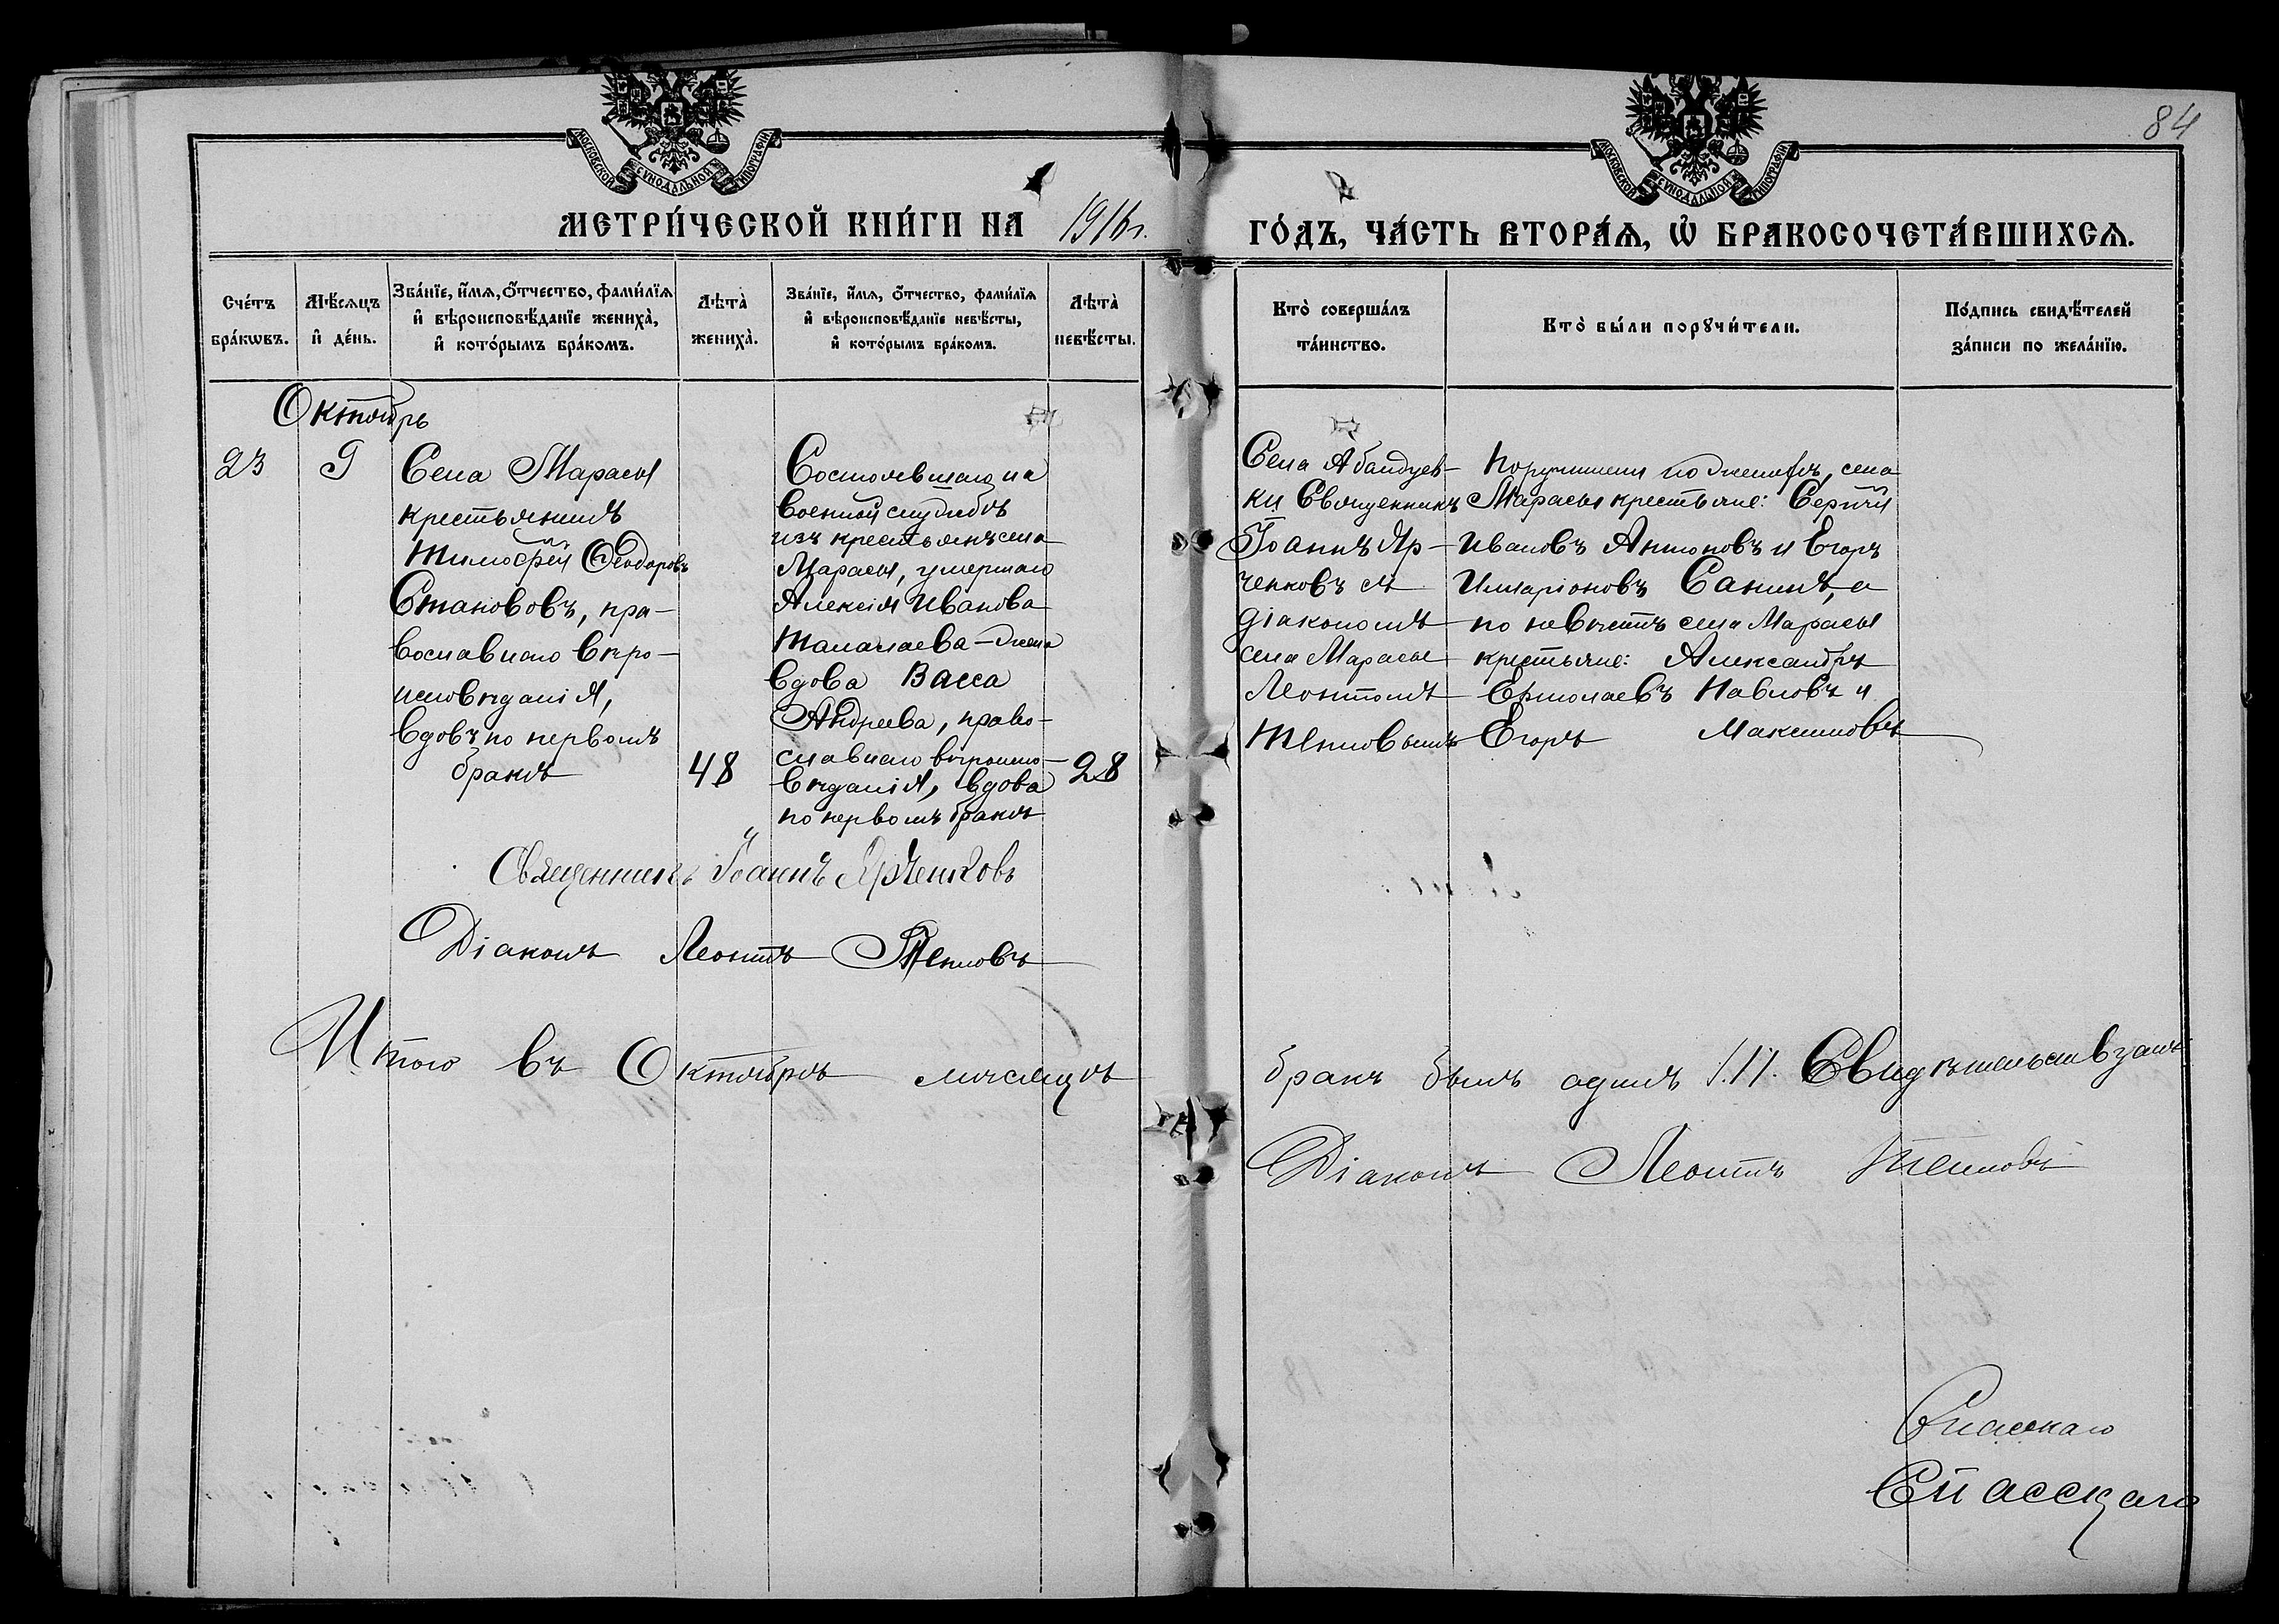 84
МОСКОВСКОЙ СѴНОДАЛЬНОЙ ТИПОГРАФІИ
МОСКОВСКОЙ СѴНОДАЛЬНОЙ ТИПОГРАФІИ
МЕТРИ́ЧЕСКОЙ КНИ́ГИ НА 1916 г.
ГО́ДЪ, ЧА́СТЬ ВТОРА́Ѧ, Ѡ҆ БРАКОСОЧЕТА́ВШИХСѦ.
Сче́тъ
бра́кѡвъ.
Мѣ́сѧцъ
и҆ де́нь.
Зва́нїе, и҆́мѧ, ѻ҆́тчество, фами́лїѧ
и҆ вѣроисповѣ́данїе жениха̀,
и҆ кото́рымъ бра́комъ.
Лѣта̀
жениха̀.
Зва́нїе, и҆́мѧ, ѻ҆́тчество, фами́лїѧ
и҆ вѣроисповѣ́данїе невѣ́сты,
и҆ кото́рымъ бра́комъ.
Лѣта̀
невѣ́сты.
Кто̀ соверша́лъ
та́инство.
Кто̀ бы́ли порꙋчи́тели.
По́дпись свидѣ́телей
за́писи по жела́нїю.
Октябрь
23
9
Села Марасы
крестьянинъ
Тимофей Ѳеодоровъ
Станововъ, пра-
вославнаго вѣро-
исповѣданія,
вдовъ по первомъ
бракѣ
48
Состоявшаго на
военной службѣ
изъ крестьянъ села
Марасы, умершаго
Алексія Иванова
Талалаева - жена
вдова Васса
Андреева, право-
славнаго вѣроиспо-
вѣданія, вдова
по первомъ бракѣ
28
Села
Священникъ
Іоаннъ Яр-
ченковъ съ
діакономъ
села Марасы
Леонтомъ
Тепловымъ
Поручители по женихѣ, села
Марасы крестьяне: Сергій
Ивановъ Антоновъ и Егоръ
Иларіоновъ Санинъ, а
по невѣстѣ села Марасы
крестьяне: Александръ
Ермолаевъ Павловъ и
Егоръ Максимовъ
Священникъ Іоаннъ Ярченковъ
Діаконъ Леонтъ Тепловъ
Итого въ Октябрѣ мѣсяцѣ
бракъ былъ одинъ /:1/. Свидѣтельствуемъ
Діаконъ Леонтъ Тепловъ
Спасскаго
Спасскаго